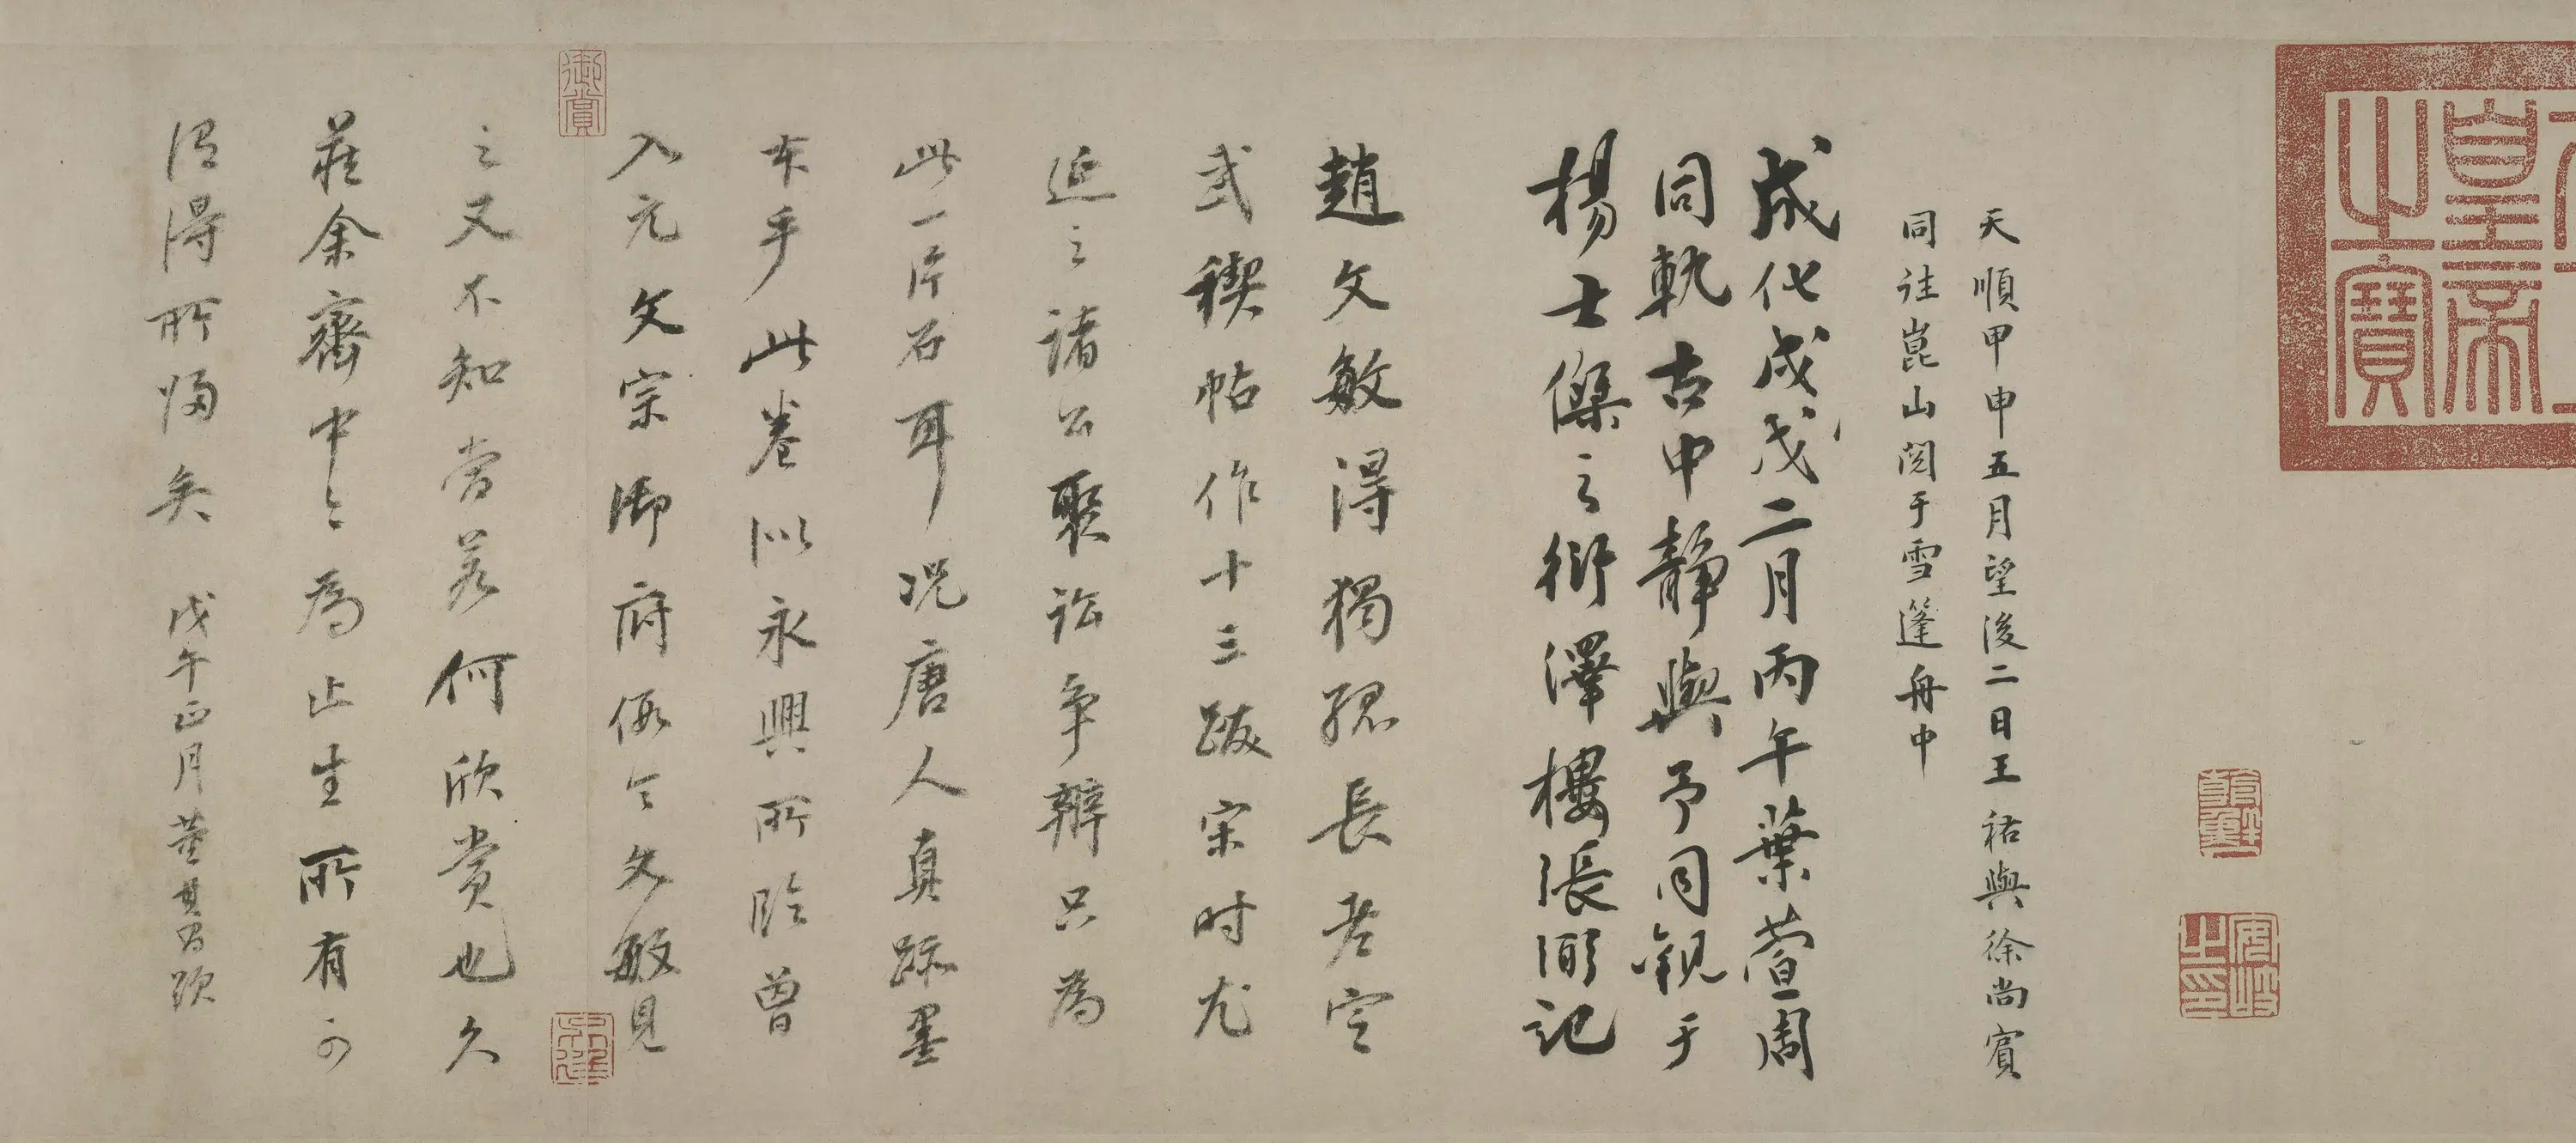 皇帝
之寶
天順甲申五月望後二日王祐與徐尚賓
同往崑山閱于雪篷舟中
成化戊戌二月丙午葉萱周
同軌古中靜與予同觀于
楊士傑之衍澤樓張弼記
趙文敏得獨孤長老定
武禊帖作十三跋宋时尤
延之諸公聚訟争辨只為
此一片石耳况唐人真跡墨
本乎此卷似永興所臨曾
入元文宗御府假令文敏見
之又不知當若何欣賞也久
藏余齋中今為止生所有可
謂得所歸矣 戊午正月董其昌跋
御賞